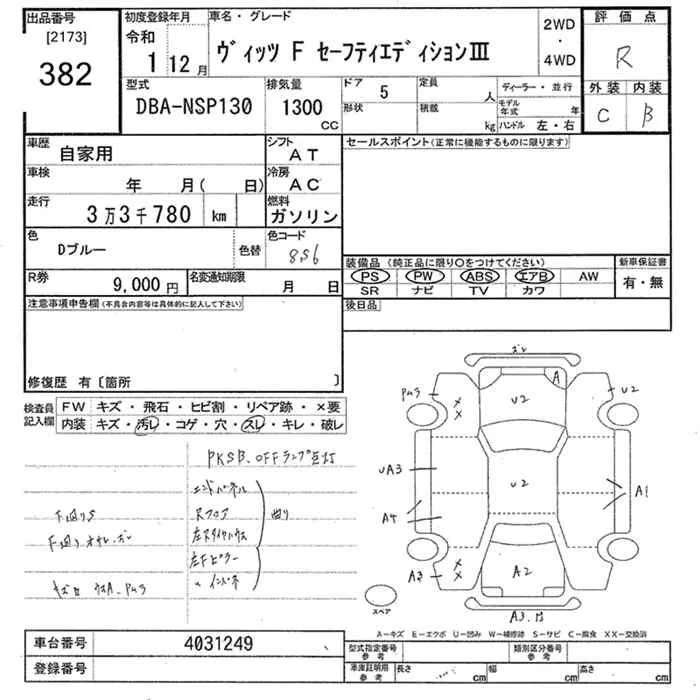 出品番号 初度登録年月 車名・グレード 2WD・4WD 評価点
[2173] 令和
382 1 12月 ヴィッツ F セーフティエディションⅢ R
型式 排気量 ドア 5 定員 人 ディーラー・並行 外装 内装
DBA-NSP130 1300 CC 形状 積載 kg モデル年式 年 C B
ハンドル 左・右
車歴 自家用 シフト AT セールスポイント(正常に機能するものに限ります)
車検 年 月( 日) 冷房 AC
走行 3万3千780 km 燃料 ガソリン
色 Dブルー 色替 色コード 8S6
装備品(純正品に限り○をつけてください) 新車保証書
R券 9,000円 名変通知期限 月 日 PS PW ABS エアB AW 有・無
SR ナビ TV カワ
注意事項申告欄(不具合内容等は具体的に記入して下さい) 後日品
修復歴 有〔箇所 〕
検査員記入欄 FW キズ・飛石・ヒビ割・リペア跡・×要
内装 キズ・汚レ・コゲ・穴・スレ・キレ・破レ
PKSB.OFFランプ点灯
エンドパネル
下廻りS Rフロア 曲り
左Fピラー
〃 インパネ
A U2 U2
U2
UA3 A1
A4
A2 A2
A3
スペア
A-キズ E-エクボ U-凹み W-補修跡 S-サビ C-腐食 XX-交換済
車台番号 4031249 型式指定番号 参考 類別区分番号 参考
登録番号 車庫証明用 参考 長さ cm 幅 cm 高さ cm